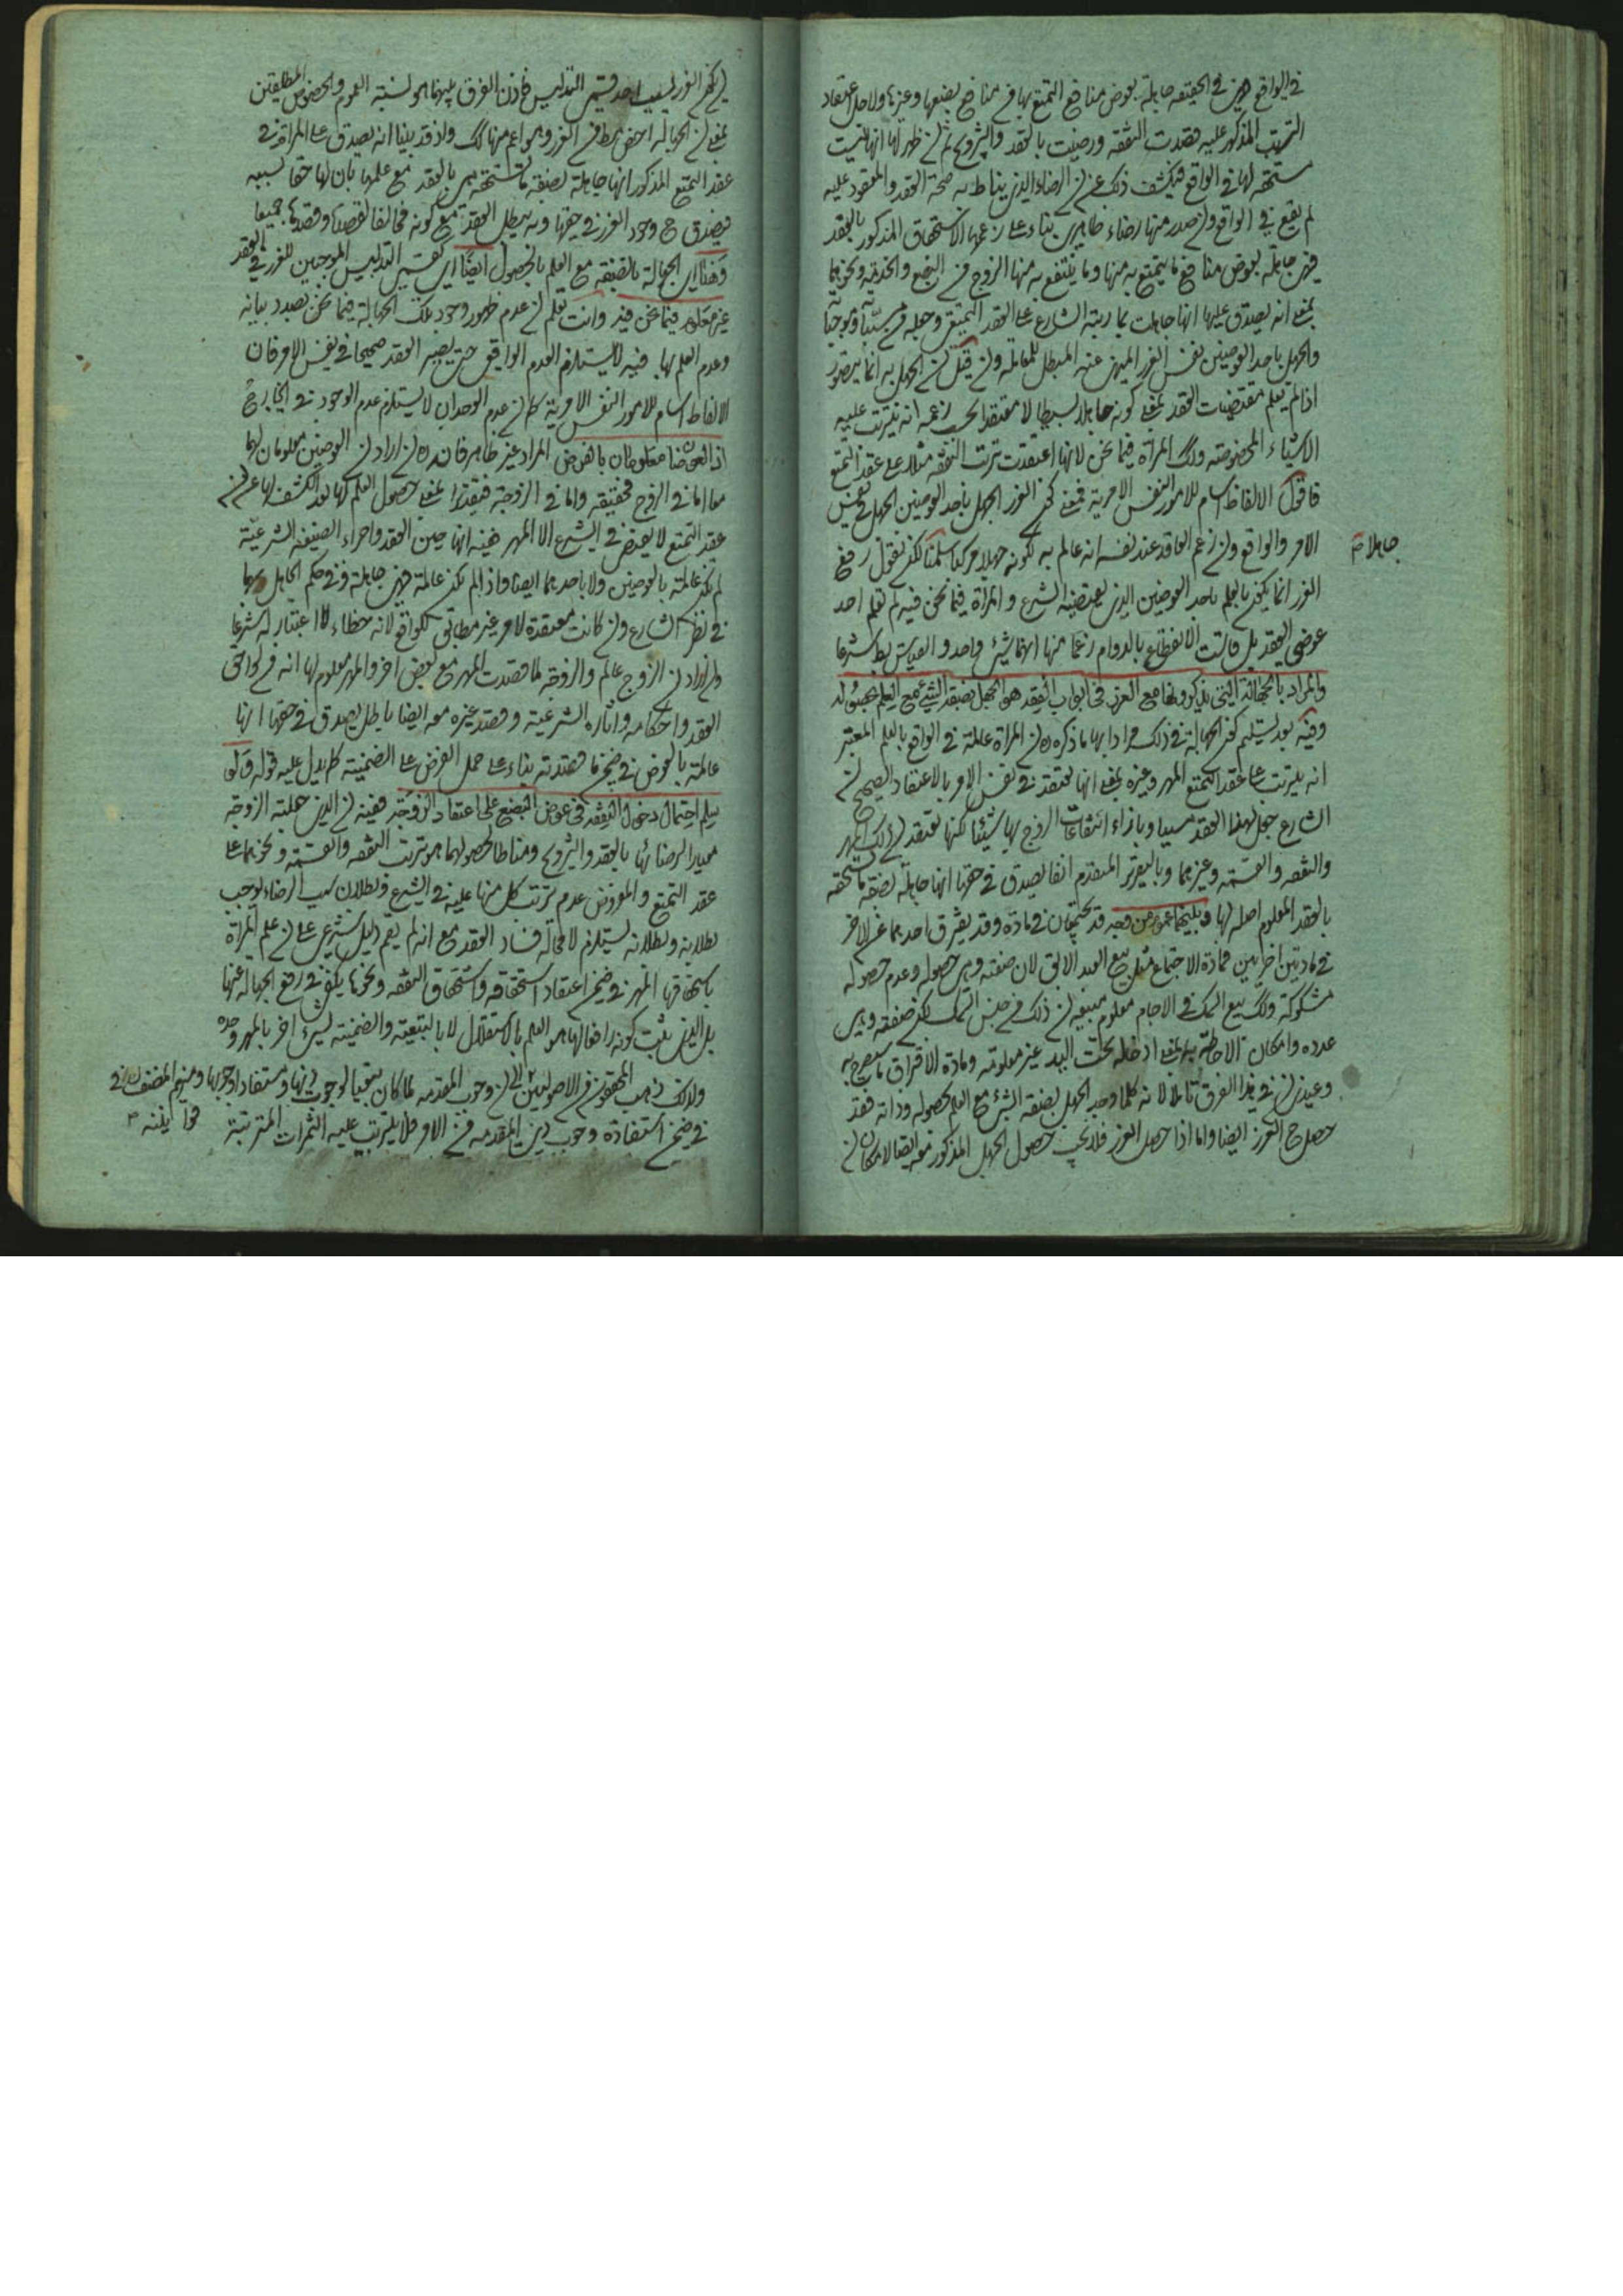 في الواقع فهي في الحقيقة جاهلة بعوض منافع التمتع بها من منافع بضعها وغيرها ولاجل اعتقاد
الترتب المذكور عليه قصدت النفقة ورضيت بالعقد والتزويج ثم ظهر لها انها ليست
مستحقة لها في الواقع فيكشف ذلك عن ان الرضاء الذي يناط به صحة العقد والمعقود عليه
لم يقع في الواقع وان صدر منها رضاء ظاهري بناء على زعمها الاستحقاق المذكور بالعقد
فهي جاهلة بعوض منافع ما يتمتع به منها وما ينتفع به منها الزوج من البضع والخدمة ونحوهما
بمعنى انه يصدق عليها انها جاهلت بما رتبه الشارع على العقد التمتع وجعله مسببا وموجبا
والجهل باحد العوضين نفس الغرر المنهي عنه المبطل للمعاملة وان قيل ان الجهل به انما يتصور
اذا لم تعلم مقتضيات العقد بمعنى كونه جاهلا بسيطا لا معتقدا بحسب زعمه انه يترتب عليه
الاشياء المخصوصة وكك المراة فيما نحن لانها اعتقدت ترتب النفقة مثلا على عقد التمتع
فاقول الالفاظ اسام للامور النفس الامرية فمعنى كون الغرر الجهل باحد العوضين الجهل في نفس
الامر والواقع وان زعم العاقد عند نفسه انه عالم به لكونه جهلا مركبا سلمنا لكن نقول رفع
جاهلا م
الغرر انما يكون بالعلم باحد العوضين الذي يعتبرهما الشرع والمراة فيما نحن فيه لم تعلم احد
عوضي العقد بل قاست الانقطاع بالدوام زعما منها انهما شيء واحد والقياس بط شرعا
والمراد بالجهالة التي يذكرونها مع الغرر في ابواب الفقه هو الجهل بصفة الشيء مع العلم بحصوله
وفيه بعد تسليم كون الجهالة في ذلك مرادا بها ما ذكره ان المراة عالمة في الواقع بالعلم المعتبر
انه يترتب على عقد التمتع المهر وغيره بمعنى انها تعتقد في نفس الامر بالاعتقاد الصحيح ان
الشارع جعل لهذا العقد مسببا وبازاء انتفاعات الزوج بها شيئا لكنها تعتقد ان ذلك المهر
والنفقة والقسمة وغيرهما وبالتقرير المتقدم انفا يصدق في حقها انها جاهلة بصفة ما تستحقه
بالعقد المعلوم اصله لها وبينهما عموم من وجه قد يجتمعان في مادة وقد يفترق احدهما عن الاخر
في مادتين اخراتين فمادة الاجتماع مثل بيع العبد الابق لان صفته وهي حصوله وعدم حصوله
مشكوكة وكك بيع السمك في الاجام معلوم بمعنى ان ذلك من جنس السمك لكن صفته وهي
عدده وامكان الاحاطة به بمعنى ادخاله تحت اليد غير معلومة ومادة الافتراق ما سيصرح به
وعندي ان في هذا الفرق تاملا لانه كلما وجد الجهل بصفة الشيء مع العلم بحصوله وذاته فقد
حصل ح الغرر ايضا واما اذا حصل الغرر فلا يجب حصول الجهل المذكور معه ايضا لامكان ان
يكون الغرر بسبب احد قسمي التدليس فاذن الفرق بينهما هو نسبة العموم والخصوص المطلقين
بمعنى ان الجهالة اخص مطلقا من الغرر وهو اعم منها كك واذ قد بينا انه يصدق على المراة في
عقد التمتع المذكور انها جاهلة بصفة ما تستحقه هي بالعقد مع علمها بان لها حقا بسببه
فيصدق ح وجود الغرر في حقها وبه يبطل العقد مع كونه مخالفا لقصدنا وقصدها جميعا
وهنا اي الجهالة بالصفة مع العلم بالحصول ايضا اي كقسمي التدليس الموجبين للغرر في العقد
غير معلوم فيما نحن فيه وانت تعلم ان عدم ظهور وجود تلك الجهالة فيما نحن بصدد بيانه
وعدم العلم بها فيه لا يستلزم العدم الواقعي حتى يصير العقد صحيحا في نفس الامر فان
الالفاظ اسام للامور النفس الامرية كما ان عدم الوجدان لا يستلزم عدم الوجود في الخارج
اذ العوضان معلومان بالفرض المراد غير ظاهر فانه ان اراد ان العوضين معلومان لهما
معا اما في الزوج فحقيقة واما في الزوجة فتقديرا بمعنى حصول العلم لها بعد الكشف لها عن ان
عقد التمتع لا يعوض في الشرع الا المهر ففيه انها حين العقد واجراء الصيغة الشرعية
لم تكن عالمة بالعوضين ولا باحدهما ايضا واذا لم تكن عالمة فهي جاهلة وفي حكم الجاهل بهما
في نظر الشارع وان كانت معتقدة لامر غير مطابق للواقع لانه خطاء لا اعتبار له شرعا
وان اراد ان الزوج عالم والزوجة لما قصدت المهر مع بعض اخر والمهر معلوم لها انه من لواحق
العقد واحكامه واثاره الشرعية وقصد غيره معه ايضا باطل يصدق في حقها انها
عالمة بالعوض في ضمن ما قصدته بناء على حمل الغرض على الضمنية كما يدل عليه قوله ولو
سلم احتمال دخول النفقة في عوض البضع على اعتقاد الزوجة ففيه ان الذي جعلته الزوجة
معيارا لرضائها بالعقد والتزويج ومناطا لحصولهما هو ترتب النفقة والقسمة ونحوهما على
عقد التمتع والمفروض عدم ترتب كل منها عليه في الشرع وبطلان سبب الرضاء يوجب
بطلانه وبطلانه يستلزم لا محالة فساد العقد مع انه لم يقم دليل شرعي على ان علم المراة
باستحقاقها المهر في ضمن اعتقاد استحقاقه واستحقاق النفقة ونحوها يكفي في رفع الجهالة عنها
بل الذي يثبت كونه رافعا لها هو العلم بالاستقلال لا بالتبعية والضمنية لشيء اخر بالمهر وحده
ولذلك ذهب المحققون من الاصوليين الى ان وجوب المقدمة لما كان تبعيا لوجوب ذيها ومستفادا من وجوبها ومنهم المصنف في
في ضمن استفادة وجوب ذي المقدمة من الامر فلا يترتب عليه الثمرات المترتبة
قوانينه م